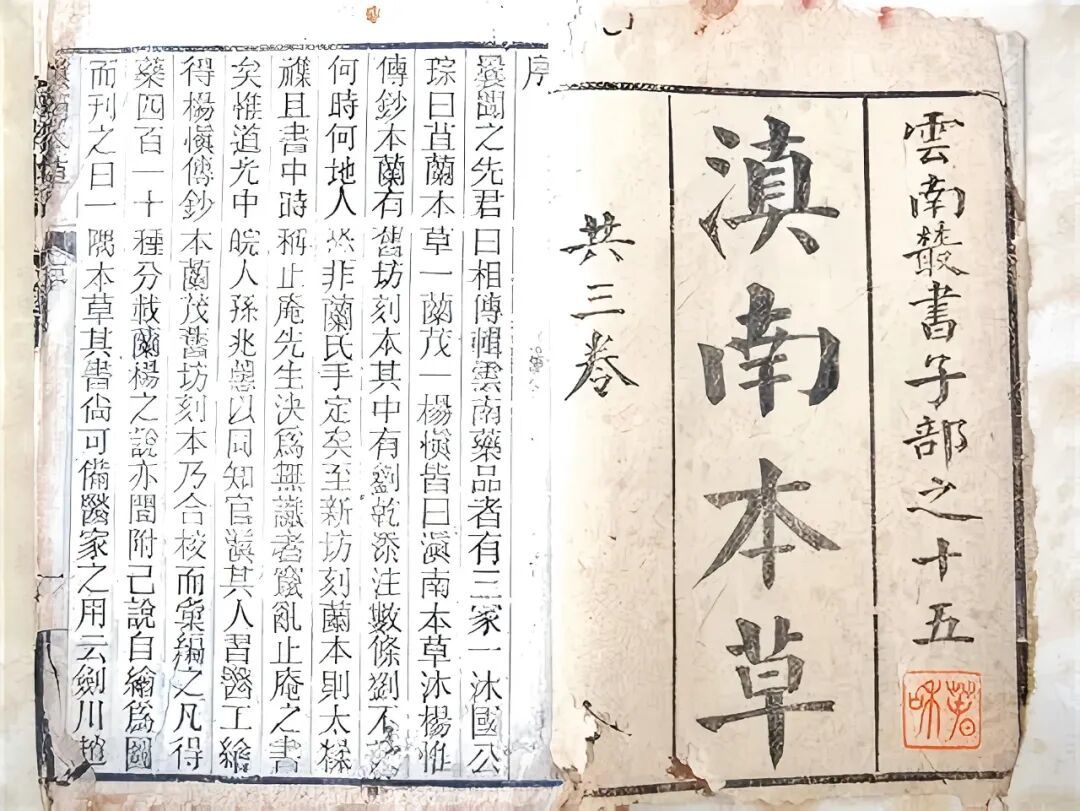 雲南叢書子部之十五
滇南本草
共三卷
序
曩聞之先君曰相傳輯雲南藥品者有三家一沐國公
琮曰苴蘭本草一蘭茂一楊慎皆曰滇南本草沐楊惟
傳鈔本蘭有舊坊刻本其中有劉乾添注數條劉不
何時何地人然非蘭氏手定矣至新坊刻蘭本則太糅
襍且書中時稱止庵先生決爲無識者竄亂止庵之書
矣惟道光中皖人孫兆蕙以同知官滇其人習醫工繪
得楊慎傳鈔本蘭茂舊坊刻本乃合校而彙編之凡得
藥四百一十種分載蘭楊之說亦間附己說自繪爲圖
而刊之曰一隅本草其書尚可備醫家之用云劍川趙